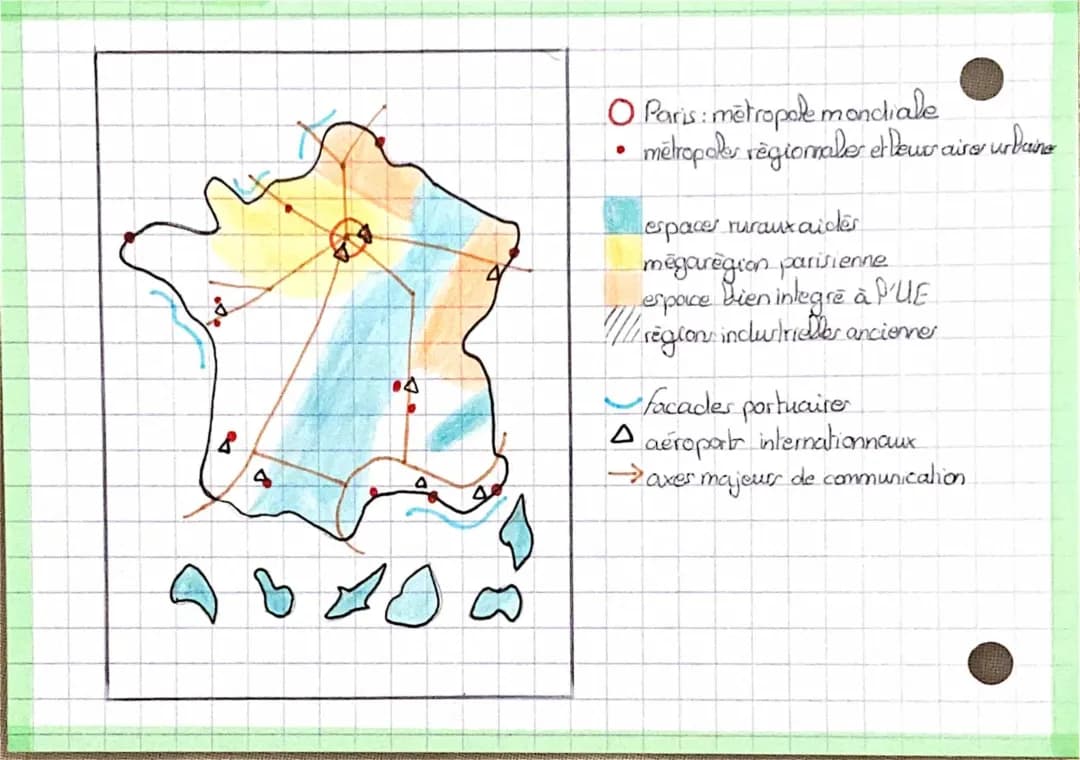 Paris : métropole mondiale
métropoles régionnales et leurs aires urbaine
espaces ruraux aidés
mégarégion parisienne
espace bien integré à l'UE
régions industrielles anciennes
facades portuaires
aéroports internationnaux
axes majeurs de communication